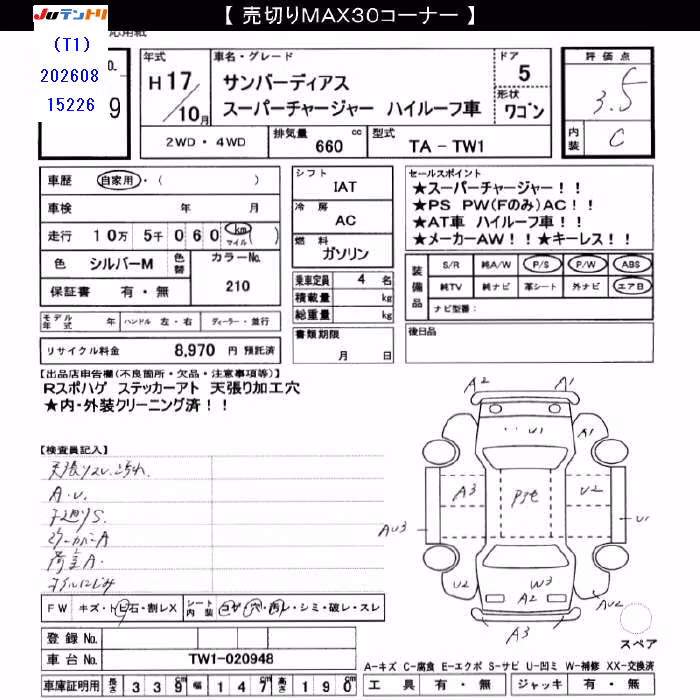 【 売切りMAX30コーナー 】
JUテントリ
(T1)
202608
15226
9
年式
H17/10月
車名・グレード
サンバーディアス
スーパーチャージャー ハイルーフ車
ドア
5
形状
ワゴン
評価点
3.5
内装
C
2WD・4WD
排気量 660 cc
型式 TA-TW1
車歴 自家用・( )
車検 年 月
走行 10万 5千 060 km マイル ( )
色 シルバーM 色替 カラーNo. 210
保証書 有・無
シフト
IAT
冷房
AC
燃料
ガソリン
乗車定員 4 名
積載量 kg
総重量 kg
書類期限
月 日
セールスポイント
★スーパーチャージャー！！
★PS PW(Fのみ)AC！！
★AT車 ハイルーフ車！！
★メーカーAW！！★キーレス！！
装備品
S/R 純A/W P/S P/W ABS
純TV 純ナビ 革シート 外ナビ エアB
ナビ型番：
モデル年式 年 ハンドル 左・右 ディーラー・並行
リサイクル料金 8,970 円 預託済
後日品
【出品店申告欄(不良箇所・欠品・注意事項等)】
Rスポハゲ ステッカーアト 天張り加工穴
★内・外装クリーニング済！！
【検査員記入】
A.U.
FW キズ・トビ石・割レX
シート内装 コゲ・穴・汚レ・シミ・破レ・スレ
登録No.
車台No. TW1-020948
車庫証明用 長さ 339 cm 幅 147 cm 高さ 190 cm
A2 A1
U1 A1
A3 U2
AU3 U1
U2 W3
A2 AU2
A3
スペア
A-キズ C-腐食 E-エクボ S-サビ U-凹ミ W-補修 XX-交換済
工具 有・無 ジャッキ 有・無